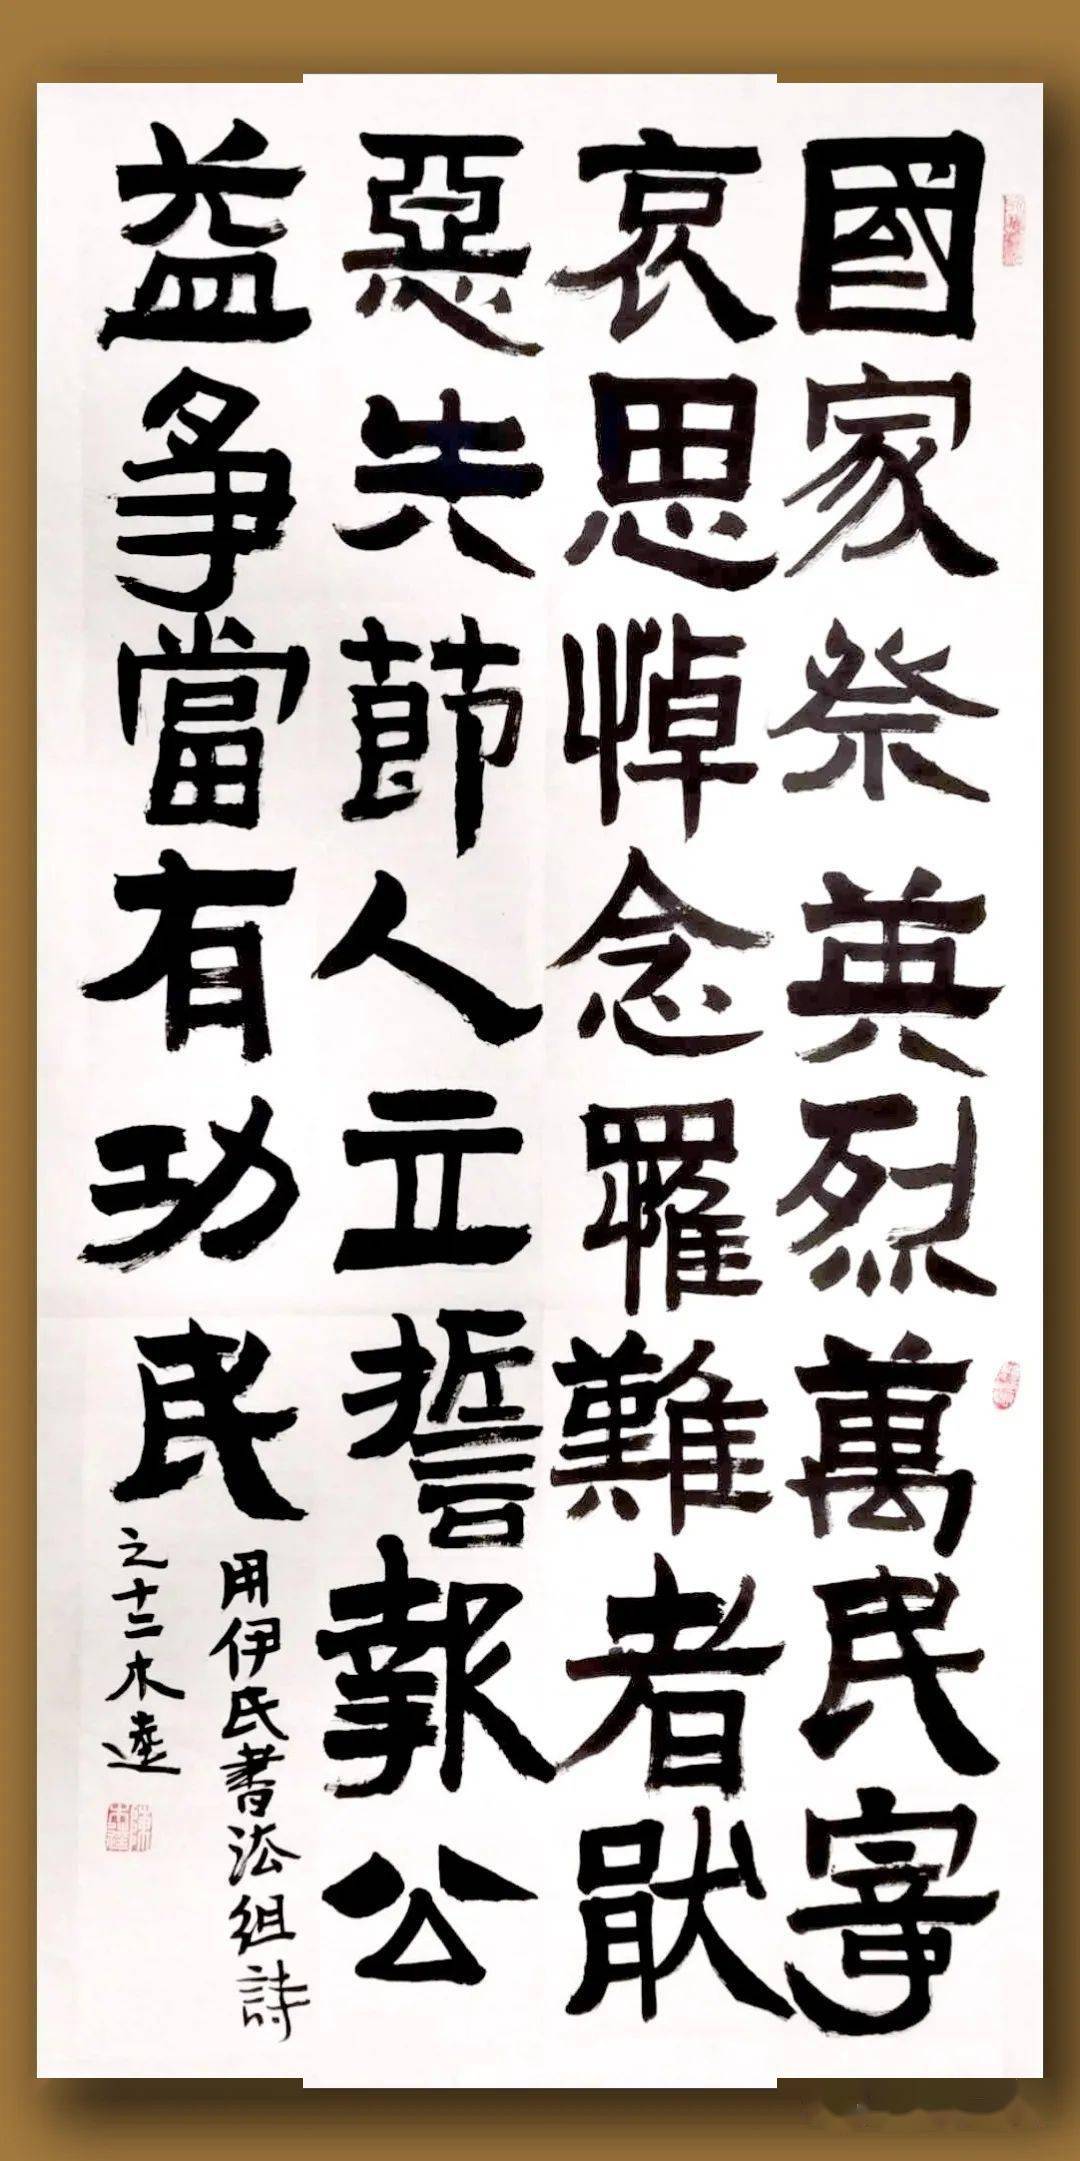 國家祭英烈萬民寄
哀思悼念罹難者猒
惡失節人立誓報公
益爭當有功民
用伊氏書法組詩
之十二木逵